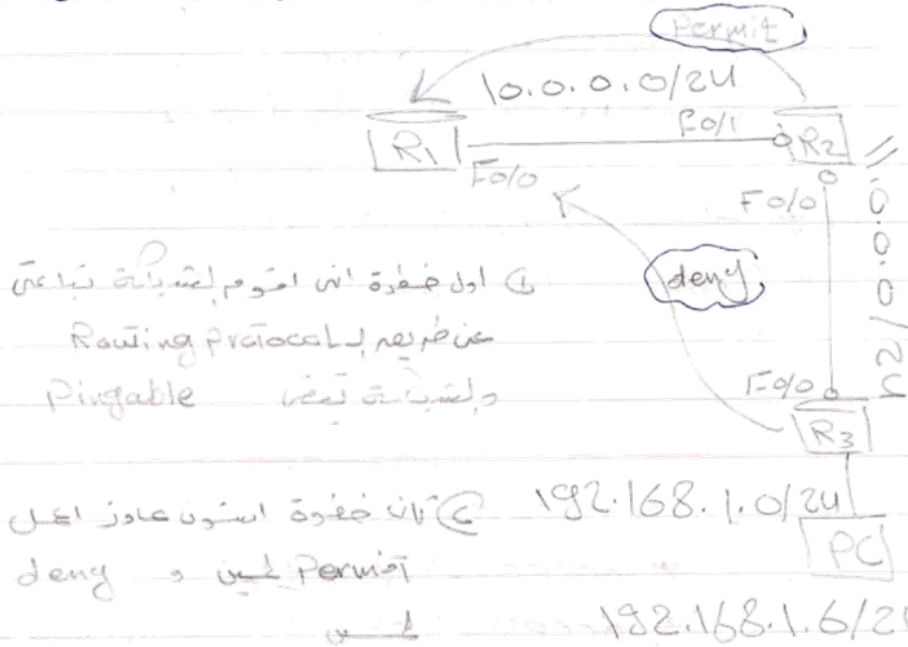 Permit
10.0.0.0/24
R1
F0/1
R2
F0/0
F0/0
11.0.0.0/24
deny
① اول خطوة انى اقوم الشبكة بتاعتى
عن طريق الـ Routing Protocol
والشبكة تبقى Pingable
F0/0
R3
② تانى خطوة اشوف عاوز اعمل
Permit لمين و deny
لمين
192.168.1.0/24
PC
192.168.1.6/24